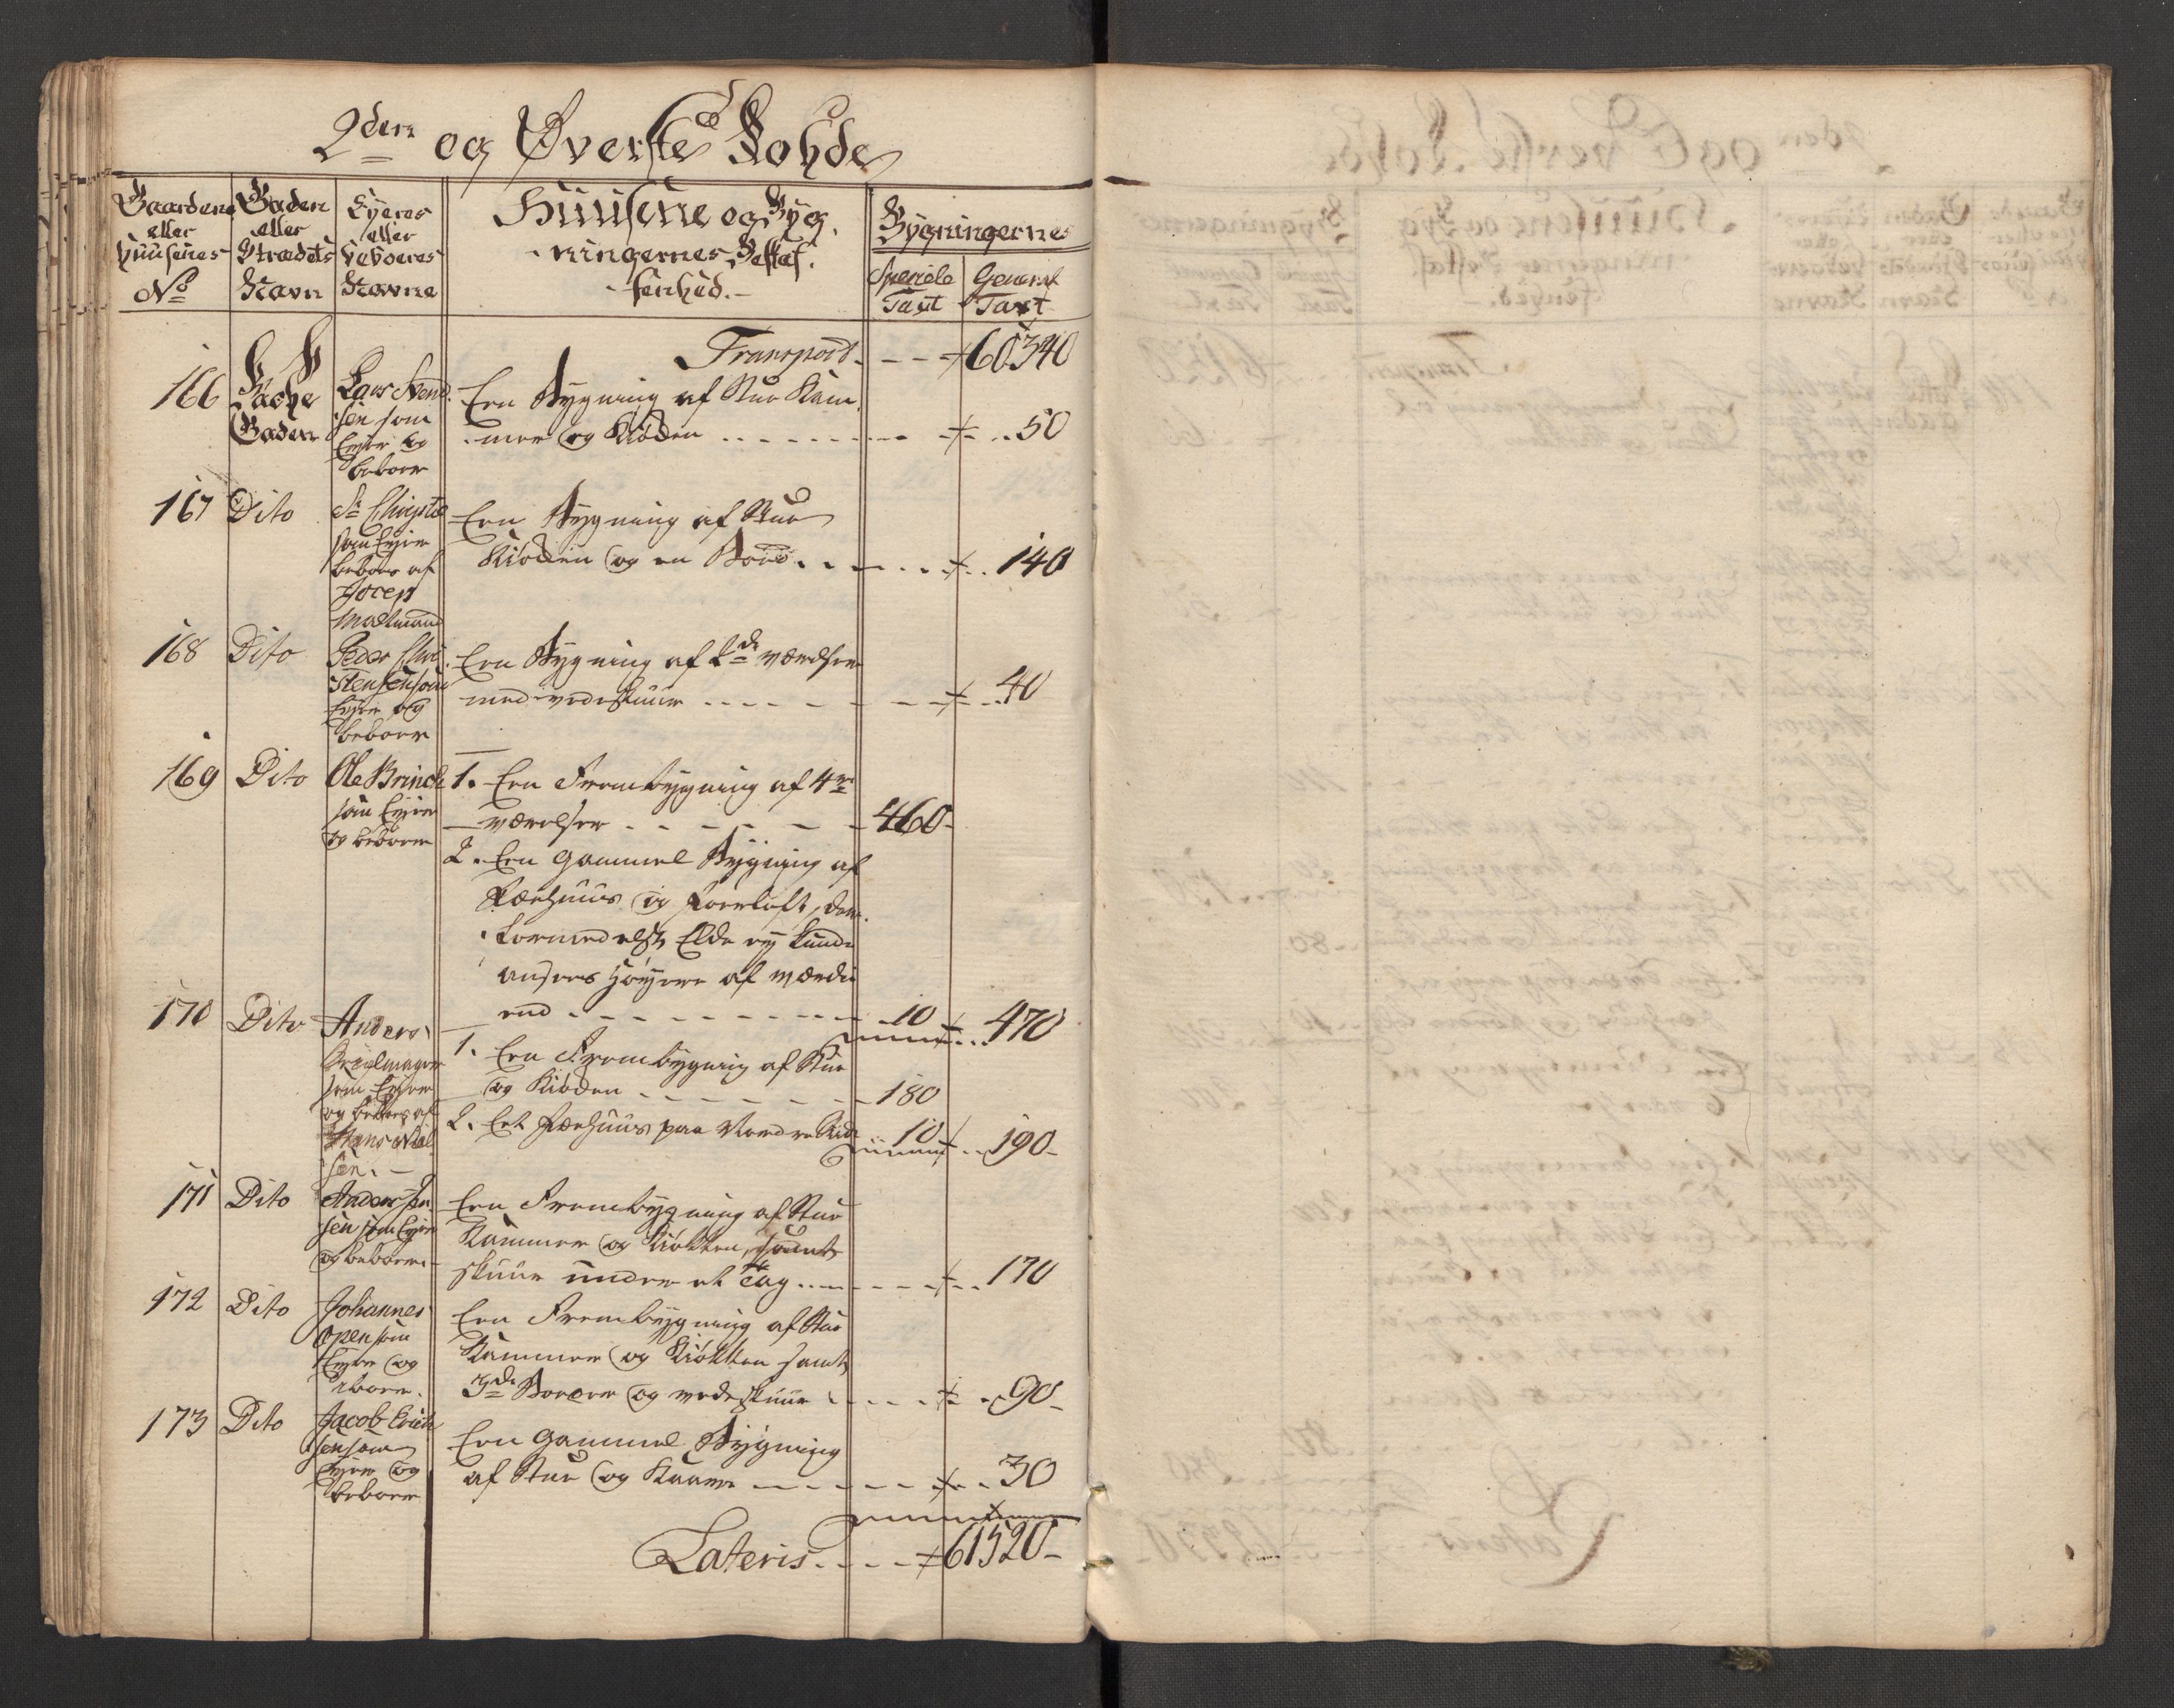 2den og Øverste Rohde
Gaardene eller Huusenes No
Gaden eller Strædets Navn
Eyeres eller Beboeres Navne
Huusene og Byg-
ningernes Beskaf-
fenhed.
Bygningernes
Speciele Taxt
General Taxt
Transport - - 60340
166 Bache Gaden
Lars Svend-
sen som
Eyer og
beboer
Een Bygning af Stue Kam-
mer og Kiøcken - - 50
167 Dito
Sr Christie
som Eyer
beboes af
Jocep
Een Bygning af Stue
Kiøcken og en Boed - - 140
168 Dito
Peder Chri-
stensen som
Eyer og
beboer
Een Bygning af 2de værelser
med vedeskuur - - 40
169 Dito
Ole Brinch
som Eyer
og beboer
1. Een Frembygning af 4re
værelser - - 460
2. Een gammel Bygning af
Fæehuus og Foerloft, der
formedelst Elde ey kunde
ansees høyere af værdie
end - - 10 - - 470
170 Dito
Anders
som Eyer
og beboes af
Hans Niel-
sen.
1. Een Frembygning af Stue
og Kiøcken - - 180
2. Et Fæehuus paa Nordre Side 10 - - 190
171 Dito
Anders Jen-
sen som Eyer
og beboer
Een Frembygning af Stue
Kammer og Kiøkken, samt
skuur under et Tag - - 170
172 Dito
Johannes
som
Eyer og
beboer.
Een Frembygning af Stue
Kammer og Kiøkken samt
3de Boeder og vedeskuur - - 90
173 Dito
Jacob Erich-
sen som
Eyer og
beboer
Een gammel Bygning
af Stue og Kaave - - 30
Lateris - - 61520